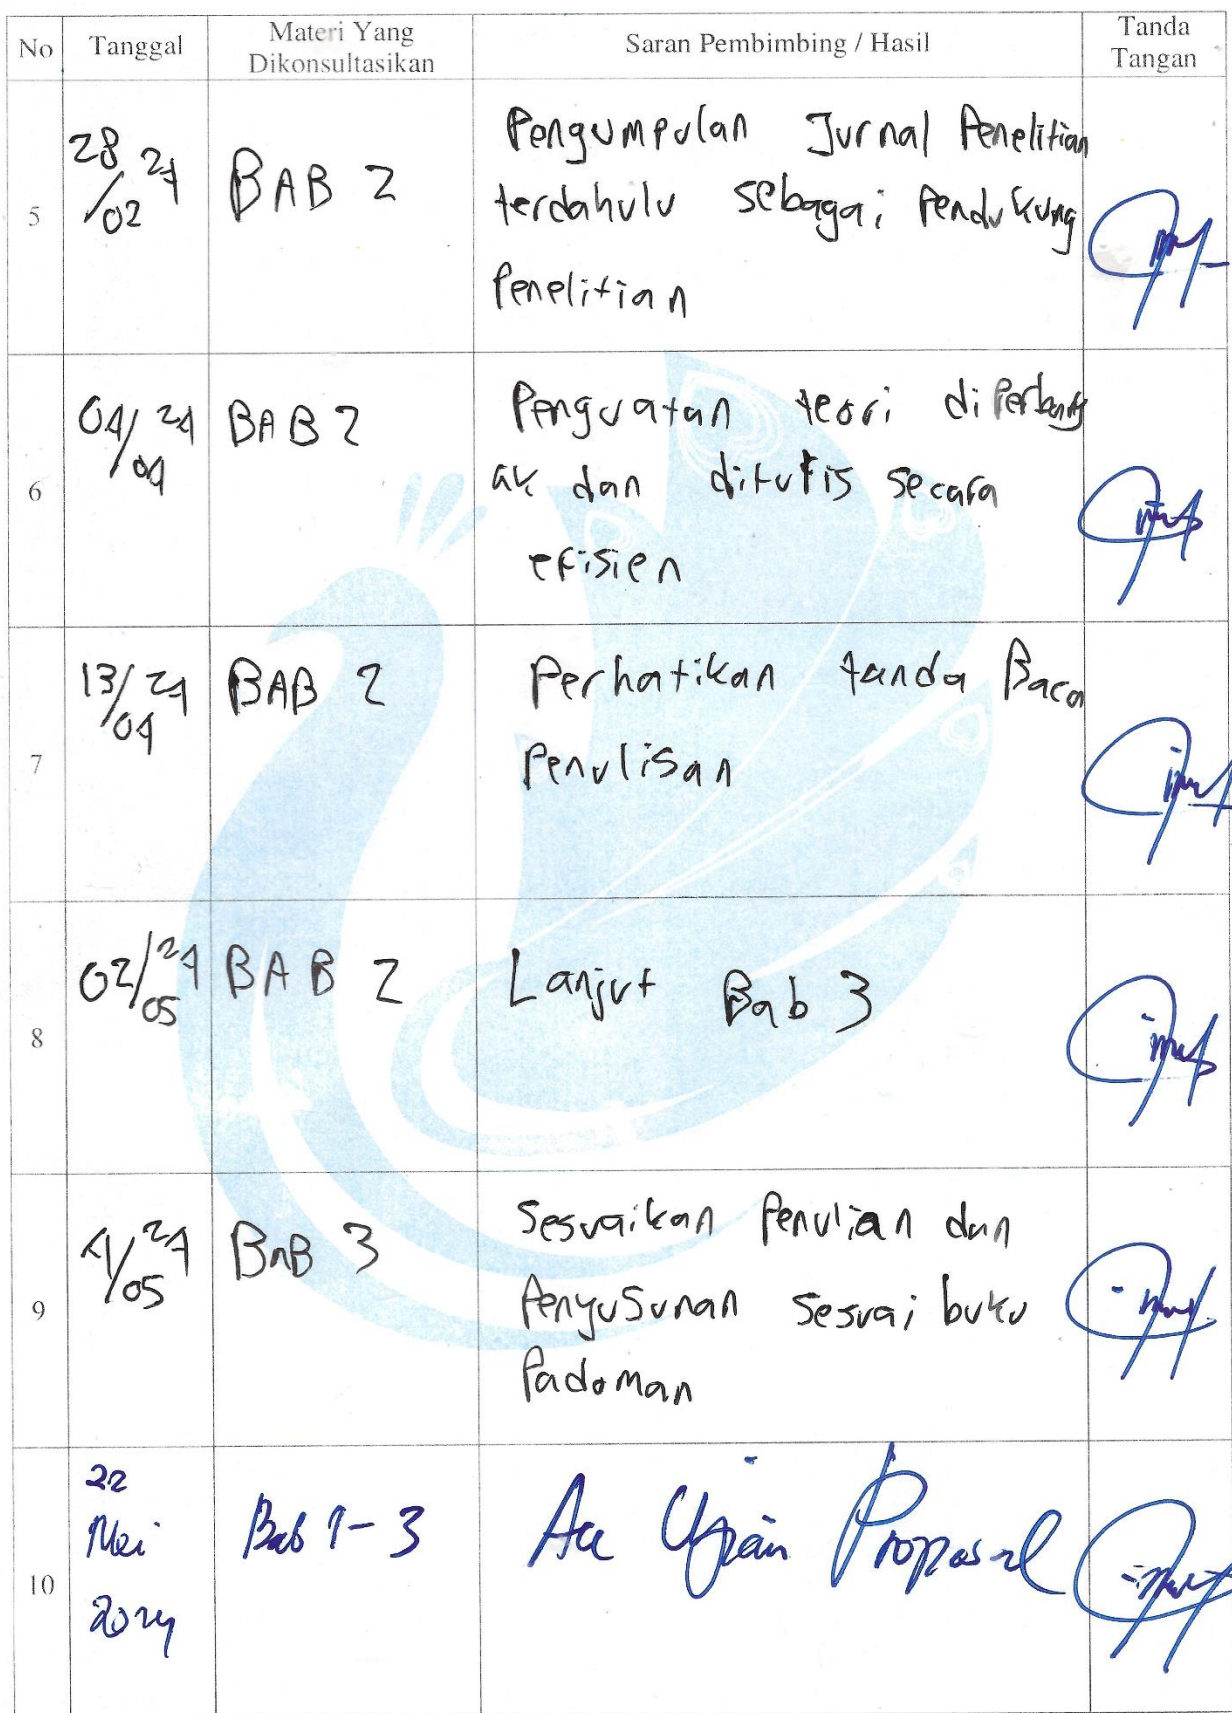 No Tanggal Materi Yang Dikonsultasikan Saran Pembimbing / Hasil Tanda Tangan
5 28/02 24 BAB 2 Pengumpulan Jurnal Penelitian
terdahulu sebagai Pendukung
Penelitian
6 04/04 24 BAB 2 Penguatan teori diPerbany
ak dan ditulis secara
efisien
7 13/04 24 BAB 2 Perhatikan tanda Baca
Penulisan
8 02/05 24 BAB 2 Lanjut Bab 3
9 4/05 24 BAB 3 Sesuaikan Penulian dan
Penyusunan Sesuai buku
Padoman
10 22 Mei 2024 Bab 1-3 Acc Ujian Proposal